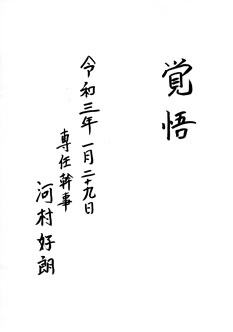 覚悟
令和三年一月二十九日
専任幹事
河村好朗